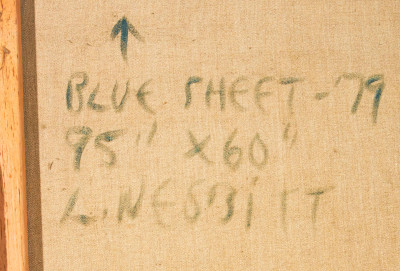 BLUE SHEET - '79
95" X 60"
L. NESBITT